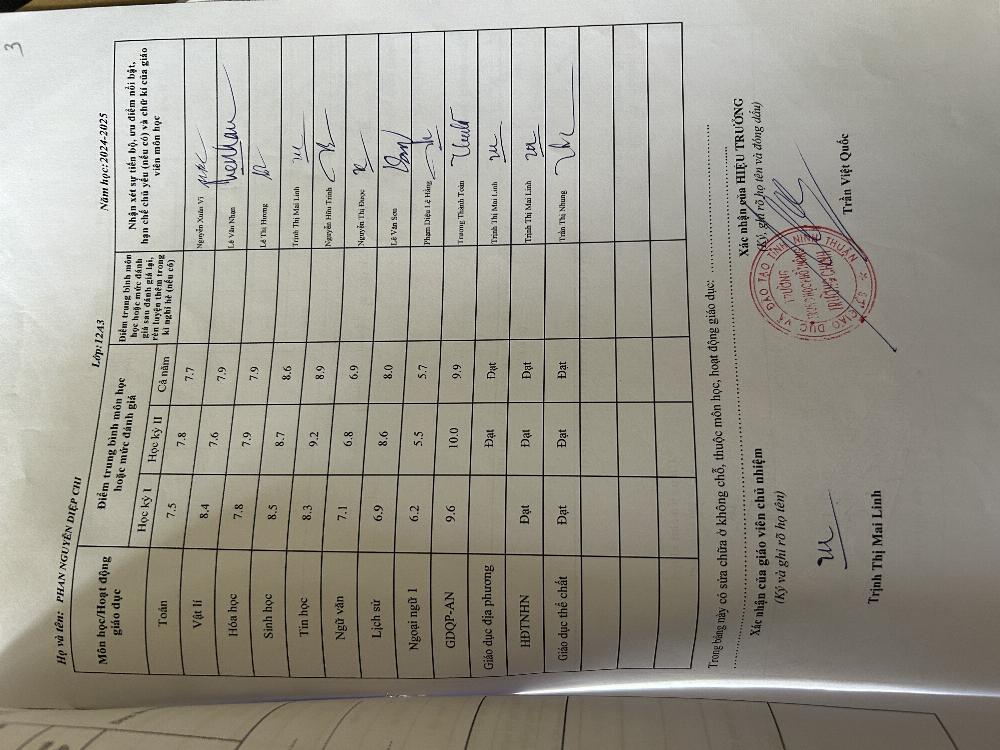 3
Họ và tên: PHAN NGUYÊN DIỆP CHI Lớp:12A3 Năm học:2024-2025
Môn học/Hoạt động giáo dục
Điểm trung bình môn học hoặc mức đánh giá
Điểm trung bình môn học hoặc mức đánh giá sau đánh giá lại, rèn luyện thêm trong kì nghỉ hè (nếu có)
Nhận xét sự tiến bộ, ưu điểm nổi bật, hạn chế chủ yếu (nếu có) và chữ kí của giáo viên môn học
Học kỳ I Học kỳ II Cả năm
Toán 7.5 7.8 7.7 Nguyễn Xuân Vĩ
Vật lí 8.4 7.6 7.9 Lê Văn Nhạn
Hóa học 7.8 7.9 7.9 Lê Thị Hương
Sinh học 8.5 8.7 8.6 Trịnh Thị Mai Linh
Tin học 8.3 9.2 8.9 Nguyễn Hữu Trình
Ngữ văn 7.1 6.8 6.9 Nguyễn Thị Được
Lịch sử 6.9 8.6 8.0 Lê Văn Sơn
Ngoại ngữ 1 6.2 5.5 5.7 Phạm Diệu Lệ Hằng
GDQP-AN 9.6 10.0 9.9 Trương Thành Toàn
Giáo dục địa phương Đạt Đạt Trịnh Thị Mai Linh
HĐTNHN Đạt Đạt Đạt Trịnh Thị Mai Linh
Giáo dục thể chất Đạt Đạt Đạt Trần Thị Nhung
Trong bảng này có sửa chữa ở không chỗ, thuộc môn học, hoạt động giáo dục:
Xác nhận của giáo viên chủ nhiệm
(Ký và ghi rõ họ tên)
Trịnh Thị Mai Linh
Xác nhận của HIỆU TRƯỞNG
(Ký, ghi rõ họ tên và đóng dấu)
SỞ GIÁO DỤC VÀ ĐÀO TẠO TỈNH NINH THUẬN
TRƯỜNG
TRUNG HỌC PHỔ THÔNG
TRƯỜNG CHINH
Trần Việt Quốc